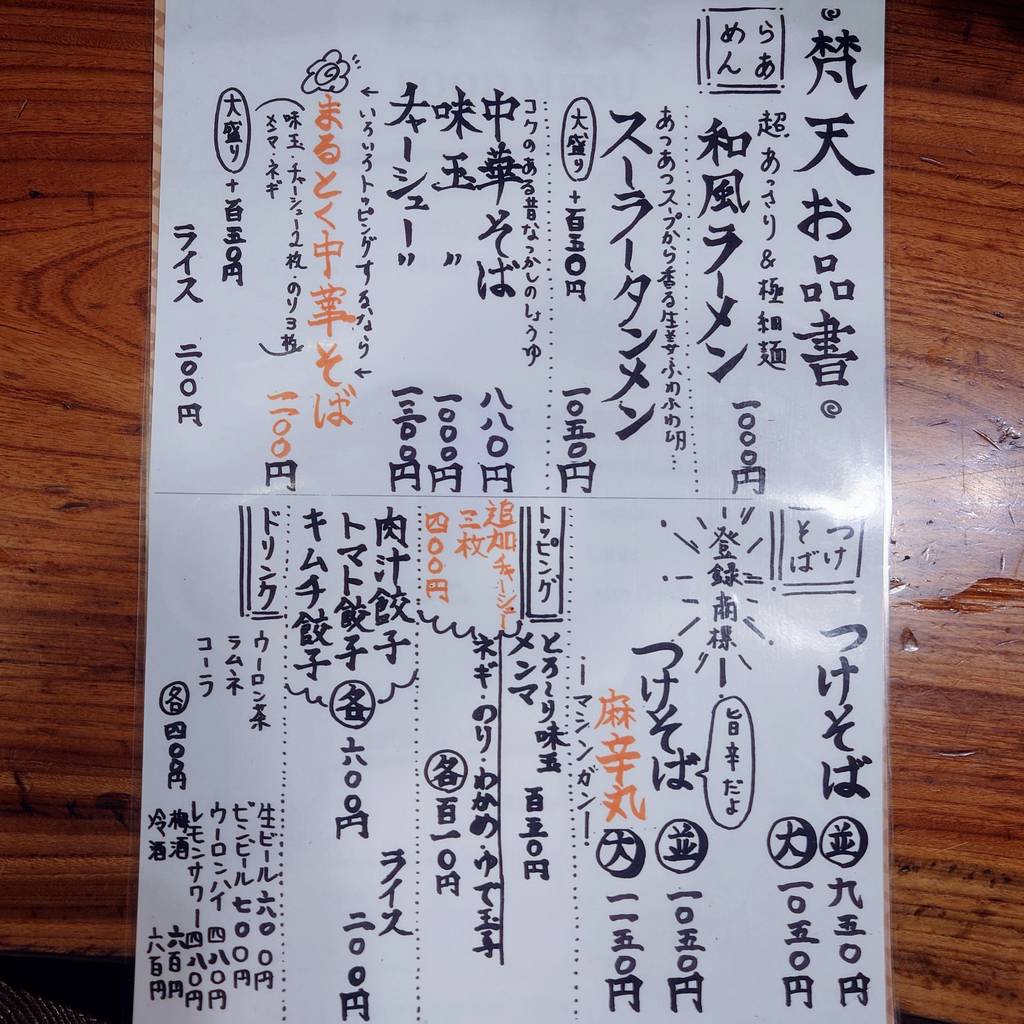 梵天お品書
らあめん
超あっさり&極細麺
和風ラーメン 一〇〇〇円
あつあつスープから香る生姜ふわふわ卵…
スーラータンメン 一〇五〇円
大盛り +百五〇円
コクのある昔なつかしのしょうゆ
中華そば 八八〇円
味玉〃 一〇〇〇円
チャーシュー〃 一三〇〇円
←いろいろトッピングするなら←
まるとく中華そば 一二〇〇円
(味玉・チャーシュー2枚・のり3枚
メンマ・ネギ)
大盛り +百五〇円
ライス 二〇〇円
つけそば
つけそば 並 九五〇円
大 一〇五〇円
登録商標
旨辛だよ
つけそば 並 一〇五〇円
麻辛丸 大 一一五〇円
ーマシンガンー
トッピング
とろ〜り味玉 百五〇円
メンマ
ネギ・のり・わかめ・ゆで玉子
各 百一〇円
追加チャーシュー
三枚
四〇〇円
肉汁餃子
トマト餃子
キムチ餃子
各 六〇〇円
ライス 二〇〇円
ドリンク
ウーロン茶
ラムネ
コーラ
各 四〇〇円
生ビール 六〇〇円
ビンビール 七〇〇円
ウーロンハイ 四八〇円
レモンサワー 四八〇円
梅酒 六百円
冷酒 六百円